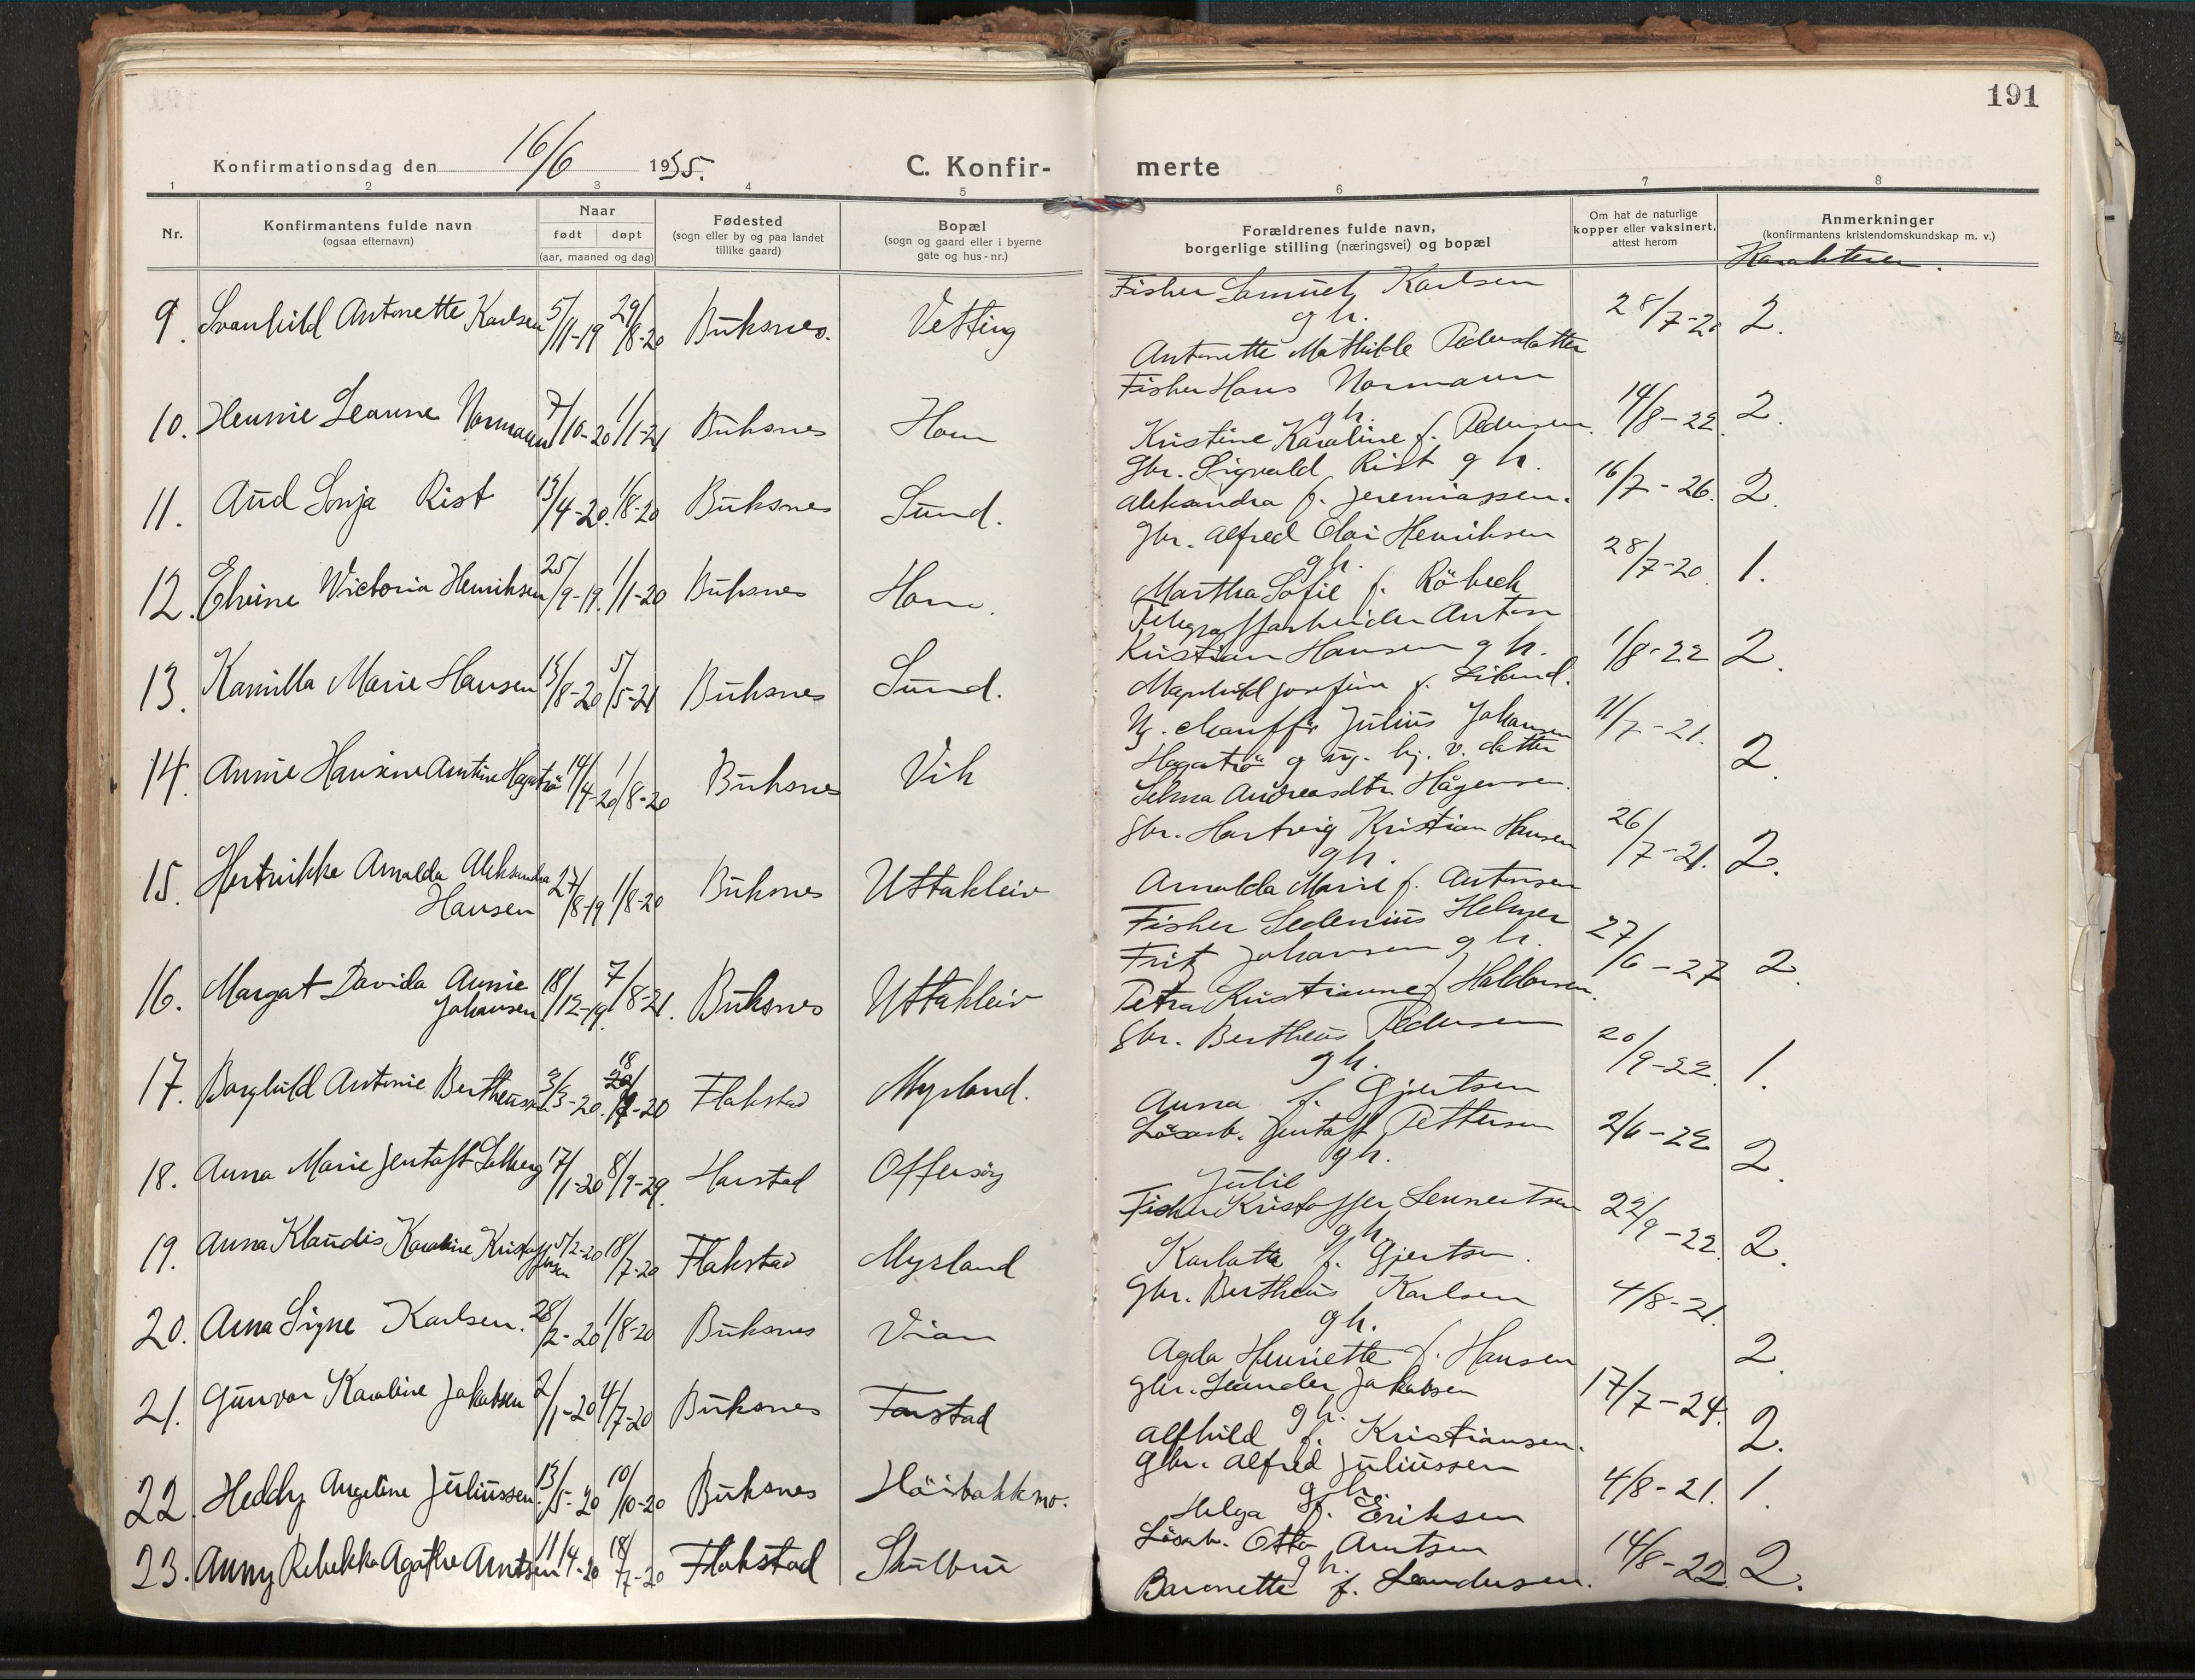 191
Konfirmationsdag den 16/6 1935.
C. Konfir-
merte
1 2 3 4 5 6 7 8
Nr.
Konfirmantens fulde navn
(ogsaa efternavn)
Naar
født døpt
(aar, maaned og dag)
Fødested
(sogn eller by og paa landet
tillike gaard)
Bopæl
(sogn og gaard eller i byerne
gate og hus-nr.)
Forældrenes fulde navn,
borgerlige stilling (næringsvei) og bopæl
Om hat de naturlige
kopper eller vaksinert,
attest herom
Anmerkninger
(konfirmantens kristendomskundskap m. v.)
Karakterer.
9. Svanhild Antonette Karlsen 5/11-19 29/8-20 Buksnes. Vetting
Fisker Samuel Karlsen
g h.
Antonette Mathilde Pedersdatter
28/7-20 2.
10. Hennie Leanne Normann 7/10-20 1/1-21 Buksnes Horn
Fisker Hans Normann
g h.
Kristine Karoline f. Pedersen.
14/8-22. 2.
11. Aud Sonja Rist 13/4-20. 1/8-20 Buksnes Sund.
Gbr. Sigvald Rist g h.
Aleksandra f. Jeremiassen.
16/7-26. 2.
12. Elvine Victoria Henriksen 25/9-19. 1/1-20 Buksnes Horn.
Gbr. Alfred Olai Henriksen
g h.
Martha Sofie f. Röbeck
28/7-20. 1.
13. Kamilla Marie Hansen 13/8-20 5/5-21 Buksnes Sund.
Telegrafarbeider Anton
Kristian Hansen g h.
Magnhild Josefine f. Liland.
1/8-22 2.
14. Annie Hansine Antine Hagatrö 14/4-20 1/8-20 Buksnes Vik
Ug. chauffør Julius Johansen
Hagatrö g ug. hj. v. datter
Selma Andreasdtr. Hågensen.
11/7-21. 2.
15. Hertvikke Arnalda Aleksandra
Hansen 27/8-19 1/8-20 Buksnes Uttakleiv
Gbr. Hartvig Kristian Hansen
g h.
Arnalda Marie f. Antonsen
26/7-21. 2.
16. Margat Davida Annie
Johansen 18/12-19. 7/8-21. Buksnes Uttakleiv
Fisker Sedenius Helmer
Fritz Johansen g h.
Petra Kristianne f. Haldorsen.
27/6-27 2.
17. Borghild Antonie Bertheussen 3/3-20. 18/7-20 Flakstad Myrland.
Gbr. Bertheus Pedersen
g h.
Anna f. Gjertsen
20/9-22. 1.
18. Anna Marie Jentoft Solberg 17/1-20 8/9-29. Harstad Offersøy
Lösarb. Jentoft Pettersen
g h.
Julie
2/6-22 2.
19. Anna Klaudis Karoline Kristoffersen 5/2-20 18/7-20 Flakstad Myrland
Fisker Kristoffer Lennertsen
g h.
Karlotta f. Gjertsen.
22/9-22. 2.
20. Arna Signe Karlsen. 28/2-20 1/8-20 Buksnes Vian
Gbr. Bertheus Karlsen
g h.
Agda Henriette f. Hansen
4/8-21. 2.
21. Gunvor Karoline Jakobsen 2/1-20 4/7-20 Buksnes Farstad
Gbr. Leander Jakobsen
g h.
Alfhild f. Kristiansen.
17/7-24. 2.
22. Heddy Angeline Juliussen 13/5-20 10/10-20 Buksnes Höibakkmo.
Gbr. Alfred Juliussen
g h.
Helga f. Eriksen
4/8-21. 1.
23. Anny Rebekka Agathe Arntsen 11/4-20 18/7-20 Flakstad Skulbru
Lösarb. Otto Arntsen
g h.
Baronette f. Leandersen.
14/8-22. 2.